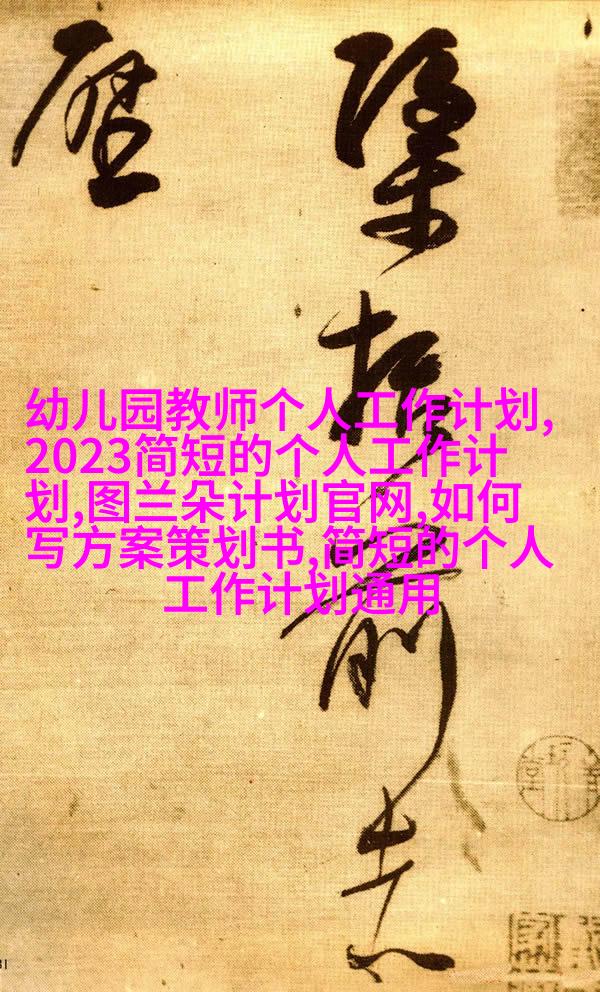 前
歷
幼儿园教师个人工作计划,
2023简短的个人工作计
划,图兰朵计划官网,如何
写方案策划书,简短的个人
工作计划通用